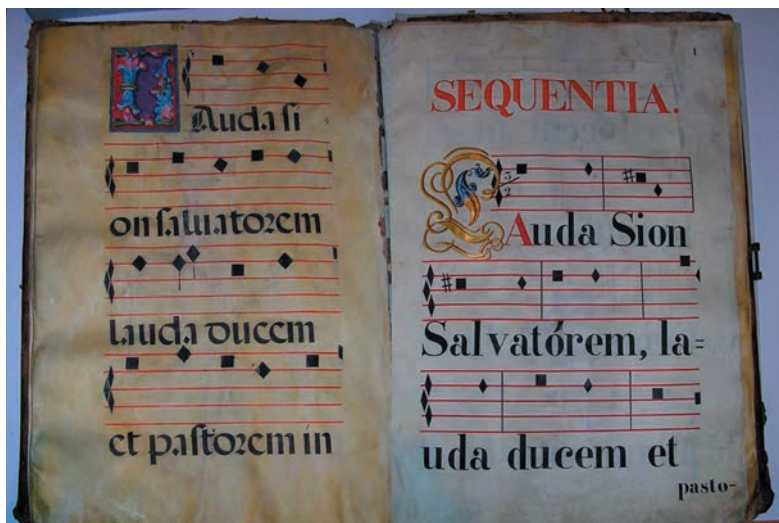 Lauda si
on saluatorem
lauda ducem
et pastorem in
1
SEQUENTIA.
3
2
LAuda Sion
Salvatórem, la=
uda ducem et
pasto-